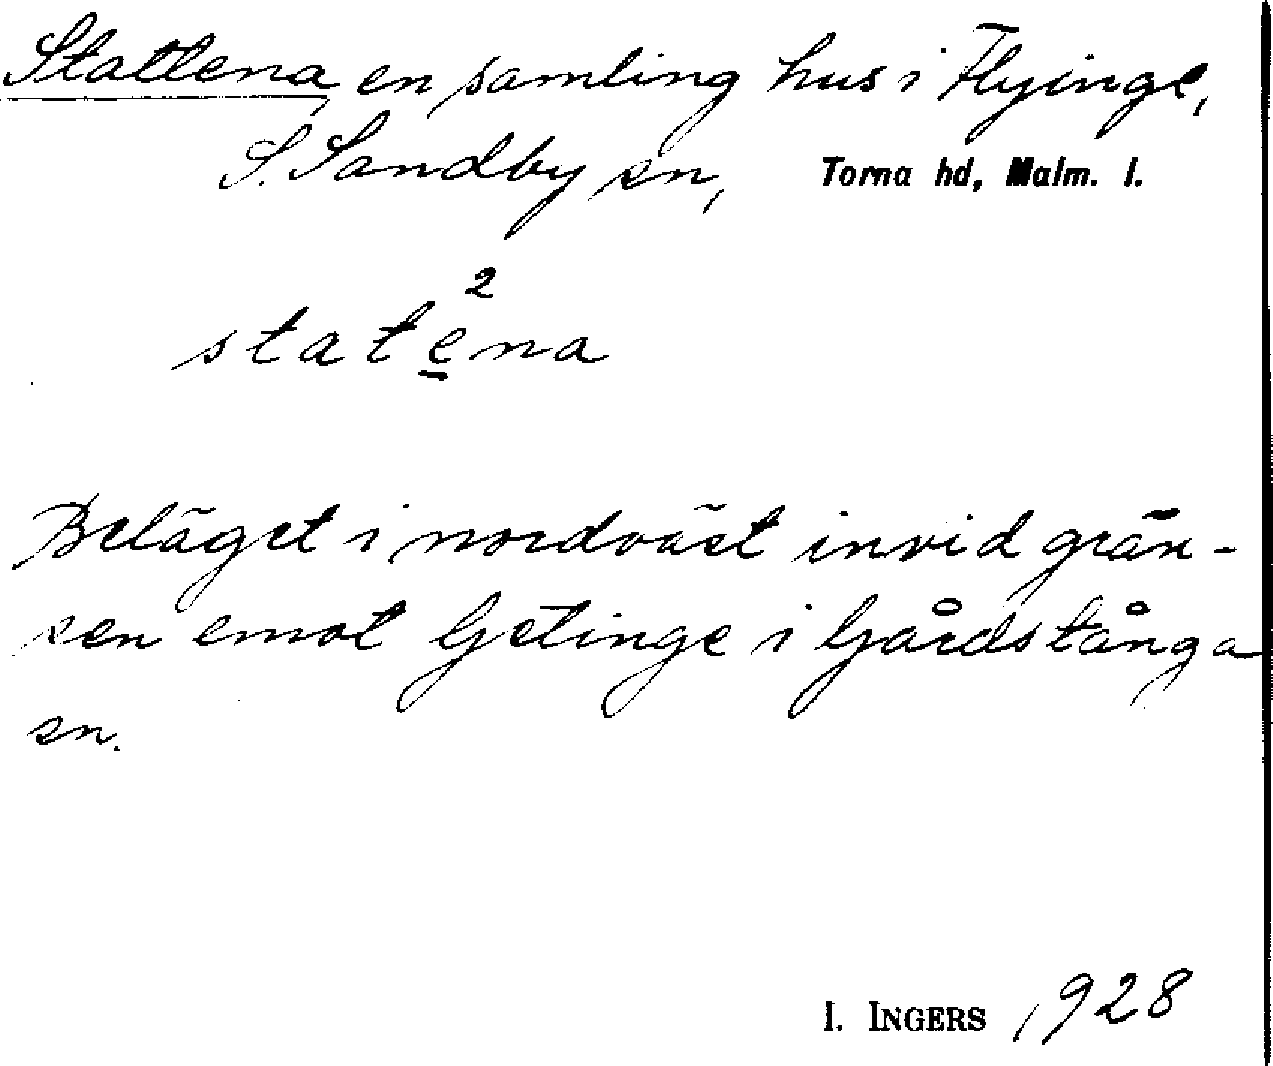 Stattena, en samling hus i Flyinge,
S. Sandby sn, Torna hd, Malm. l.
2
statena
Beläget i nordväst invid grän-
sen emot Getinge i Gårdstånga
sn.
I. INGERS 1928